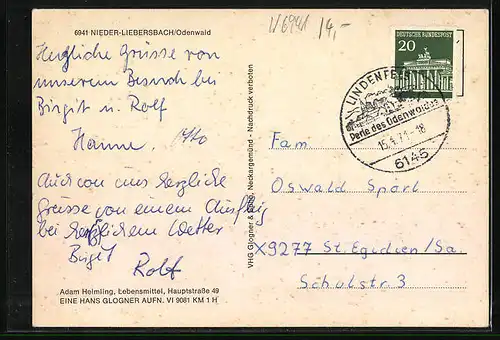 6941 NIEDER-LIEBERSBACH/Odenwald
V6941 14,-
Herzliche Grüsse von
unserem Besuch bei
Birgit u. Rolf
Hanne.
Auch von uns herzliche
Grüsse von einem Ausflug
bei herrlichem Wetter
Birgit
Rolf
Adam Helmling, Lebensmittel, Hauptstraße 49
EINE HANS GLOGNER AUFN. VI 9081 KM 1 H
VHG Glogner & Sohn, Neckargemünd - Nachdruck verboten
DEUTSCHE BUNDESPOST
20
LINDENFELS
Perle des Odenwaldes
71-18
6145
Fam.
Oswald Sport
X9277 St. Egidien/Sa.
Schulstr. 3